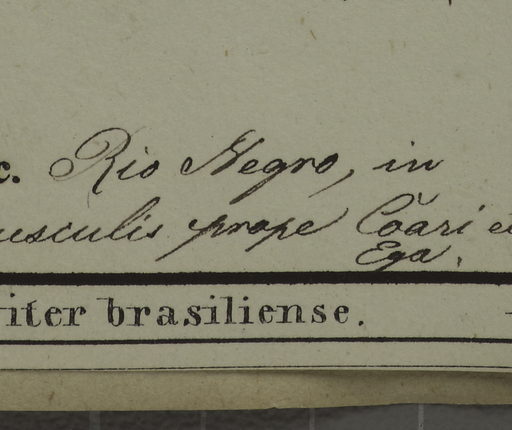 c. Rio Negro, in
usculis prope Cŏari et
Ega.
iter brasiliense.